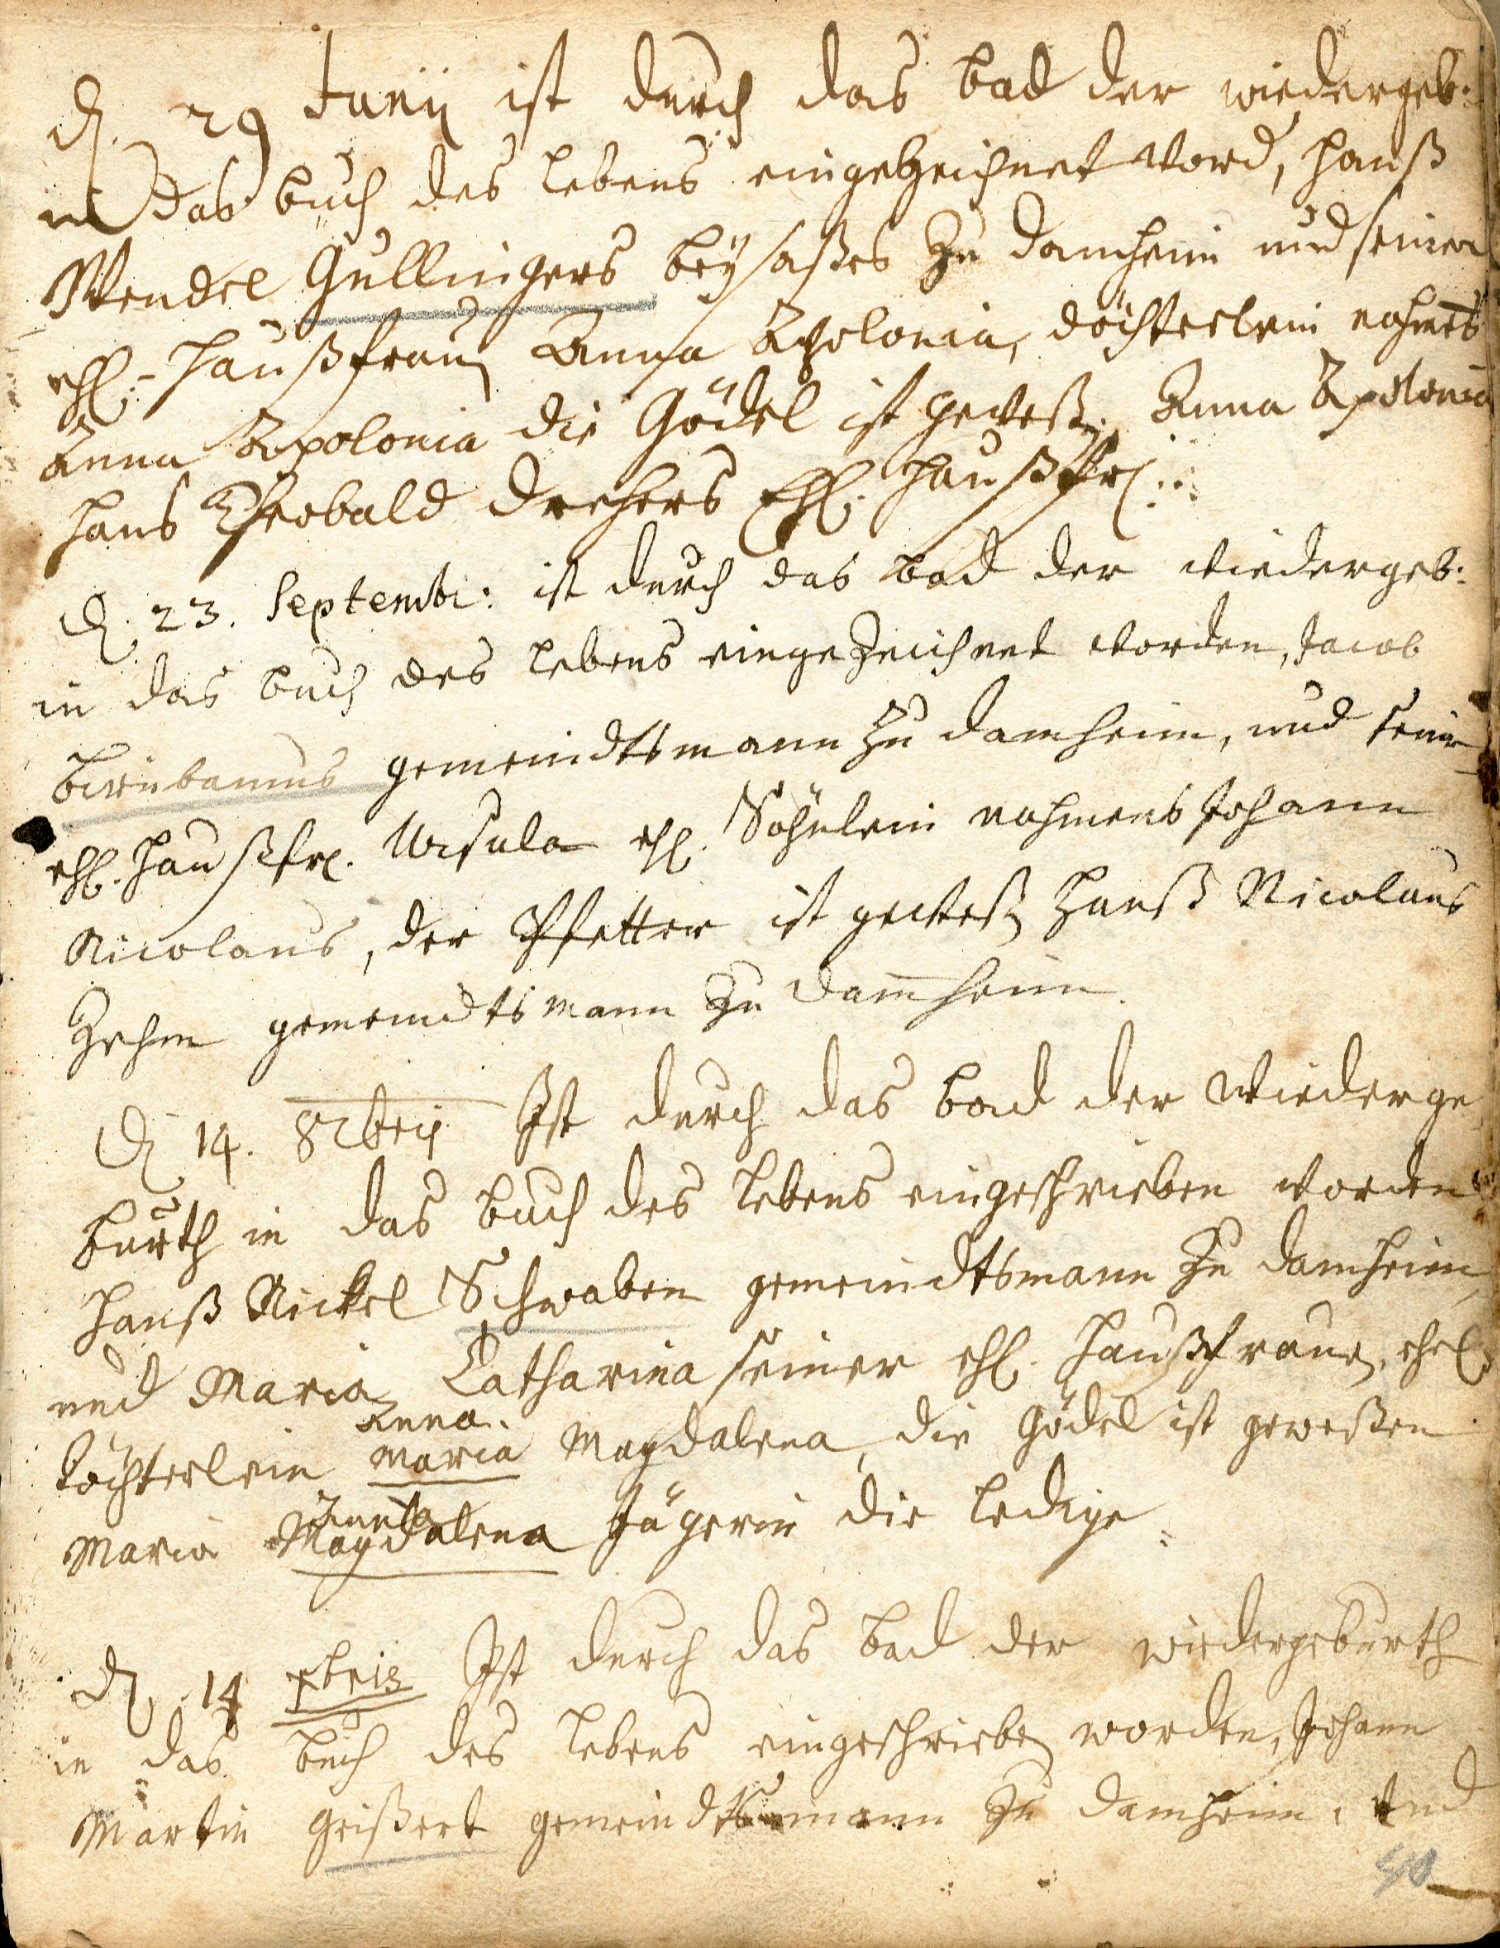 d. 29 Junij ist durch das bad der wiedergeb:
in das buch des lebens eingezeichnet word, hanß
Wendel Gullingers beysaßes zu damheim und seiner
ehl. haußfrau Anna Apolonia, döchterlein nahmes
Anna Apolonia die Gödel ist geweß. Anna Apolonia
hans Theobald Drehers Ehl. haußfr:
d. 23. Septembr: ist durch das bad der wiedergeb:
in das buch des lebens eingezeichnet worden, Jacob
birnbaums gemeindtsmann zu damheim, und seiner
ehl. haußfr. Ursula ehl. Söhnlein nahmens Johann
Nicolaus, der Pfetter ist geweß hanß Nicolaus
Zehm gemeindtsmann zu dam̄heim.
d. 14. 8tbrij Ist durch das bad der wiederge
burth in das buch des lebens eingeschrieben worden
hanß Nickel Schwaben gemeindtsmann zu damheim,
und Maria Catharina seiner ehl. haußfrauen, ehel.
Anna.
töchterlein Maria Magdalena, die Gödel ist geweßen
Maria Magdalena Jägerin die ledige
d. 14 xbris Ist durch das bad der wiedergeburth
in das buch des lebens eingeschrieben worden, Johann
Martin Geißert gemeindtsmann zu damheim, und